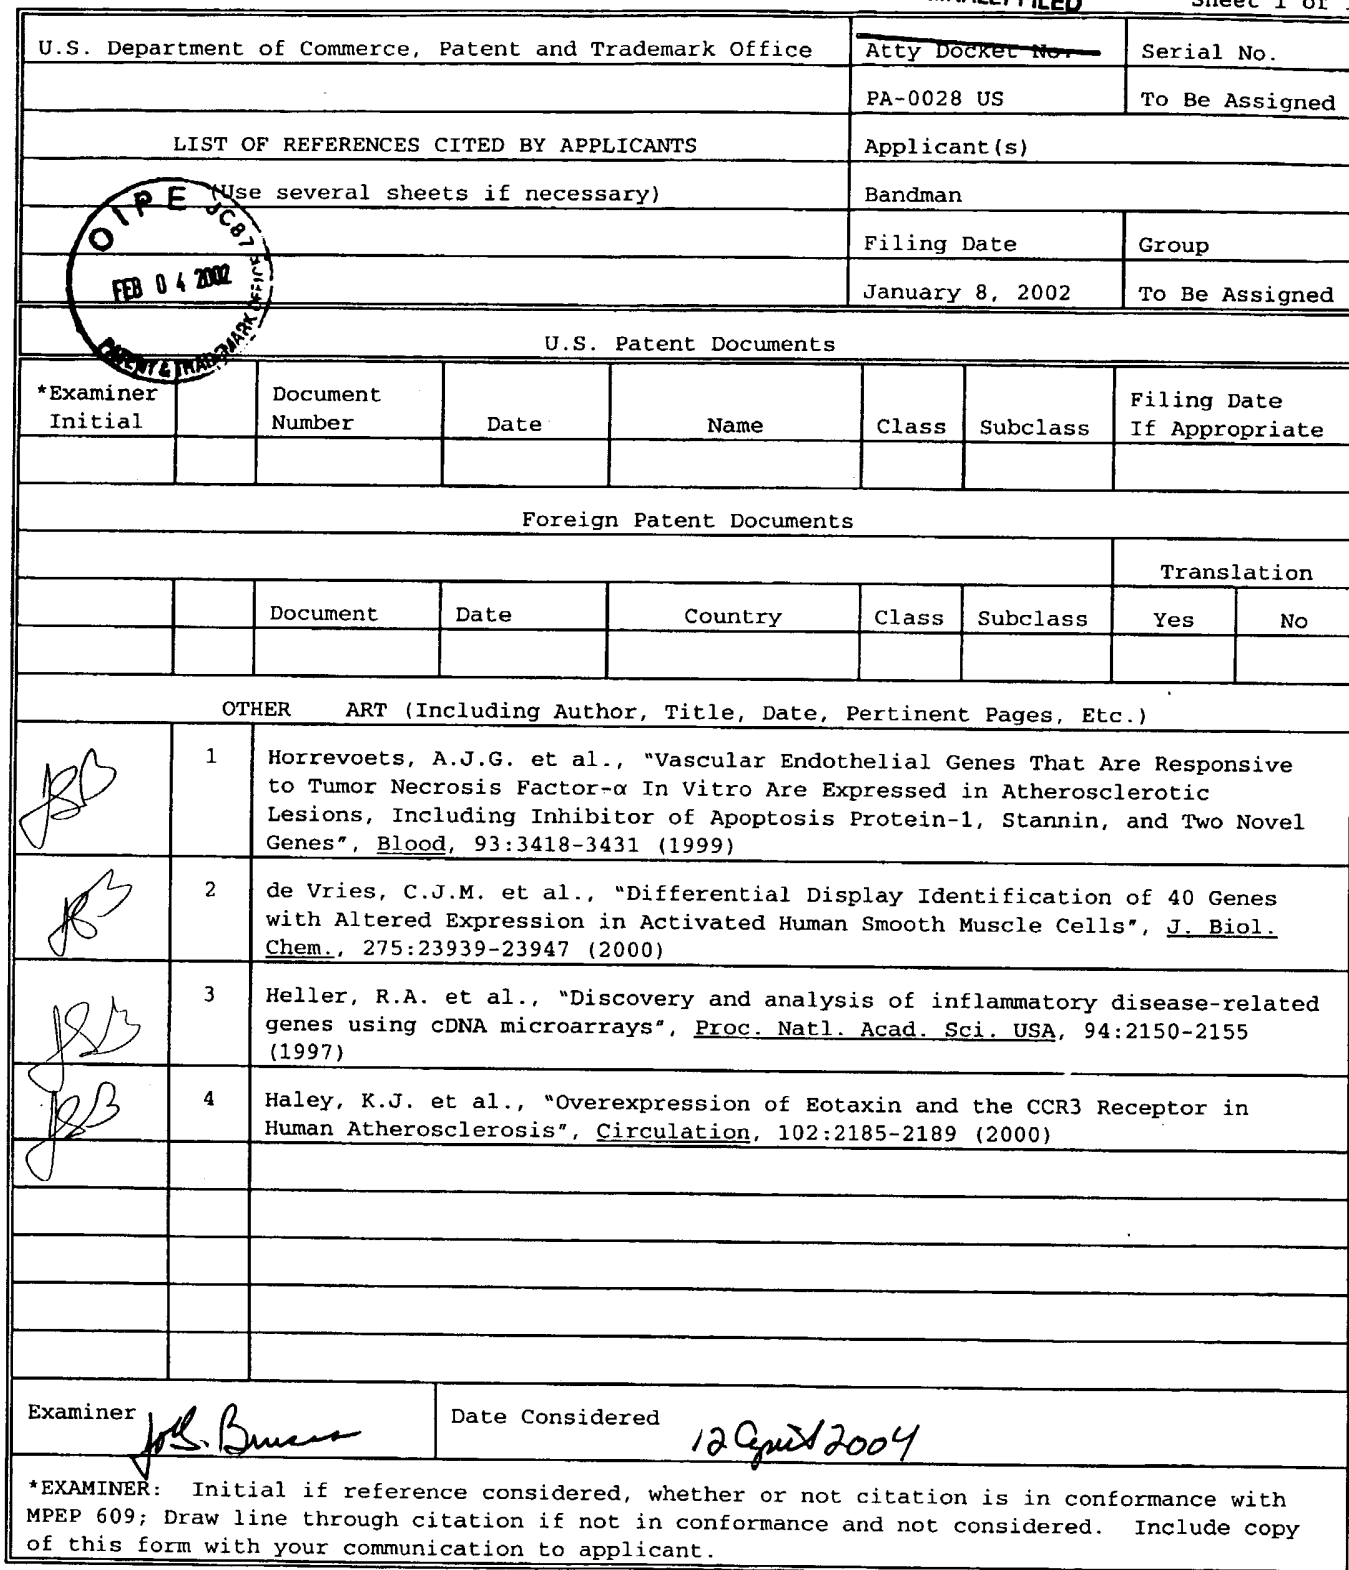 FILED Sheet 1 of
U.S. Department of Commerce, Patent and Trademark Office Atty Docket No. Serial No.
PA-0028 US To Be Assigned
LIST OF REFERENCES CITED BY APPLICANTS Applicant(s)
(Use several sheets if necessary) Bandman
Filing Date Group
January 8, 2002 To Be Assigned
OIPE JC87
FEB 04 2002
PATENT & TRADEMARK OFFICE
U.S. Patent Documents
*Examiner Document Filing Date
Initial Number Date Name Class Subclass If Appropriate
Foreign Patent Documents
Translation
Document Date Country Class Subclass Yes No
OTHER ART (Including Author, Title, Date, Pertinent Pages, Etc.)
JSB 1 Horrevoets, A.J.G. et al., "Vascular Endothelial Genes That Are Responsive
to Tumor Necrosis Factor-α In Vitro Are Expressed in Atherosclerotic
Lesions, Including Inhibitor of Apoptosis Protein-1, Stannin, and Two Novel
Genes", Blood, 93:3418-3431 (1999)
JSB 2 de Vries, C.J.M. et al., "Differential Display Identification of 40 Genes
with Altered Expression in Activated Human Smooth Muscle Cells", J. Biol.
Chem., 275:23939-23947 (2000)
JSB 3 Heller, R.A. et al., "Discovery and analysis of inflammatory disease-related
genes using cDNA microarrays", Proc. Natl. Acad. Sci. USA, 94:2150-2155
(1997)
JSB 4 Haley, K.J. et al., "Overexpression of Eotaxin and the CCR3 Receptor in
Human Atherosclerosis", Circulation, 102:2185-2189 (2000)
Examiner Date Considered 12 April 2004
*EXAMINER: Initial if reference considered, whether or not citation is in conformance with
MPEP 609; Draw line through citation if not in conformance and not considered. Include copy
of this form with your communication to applicant.